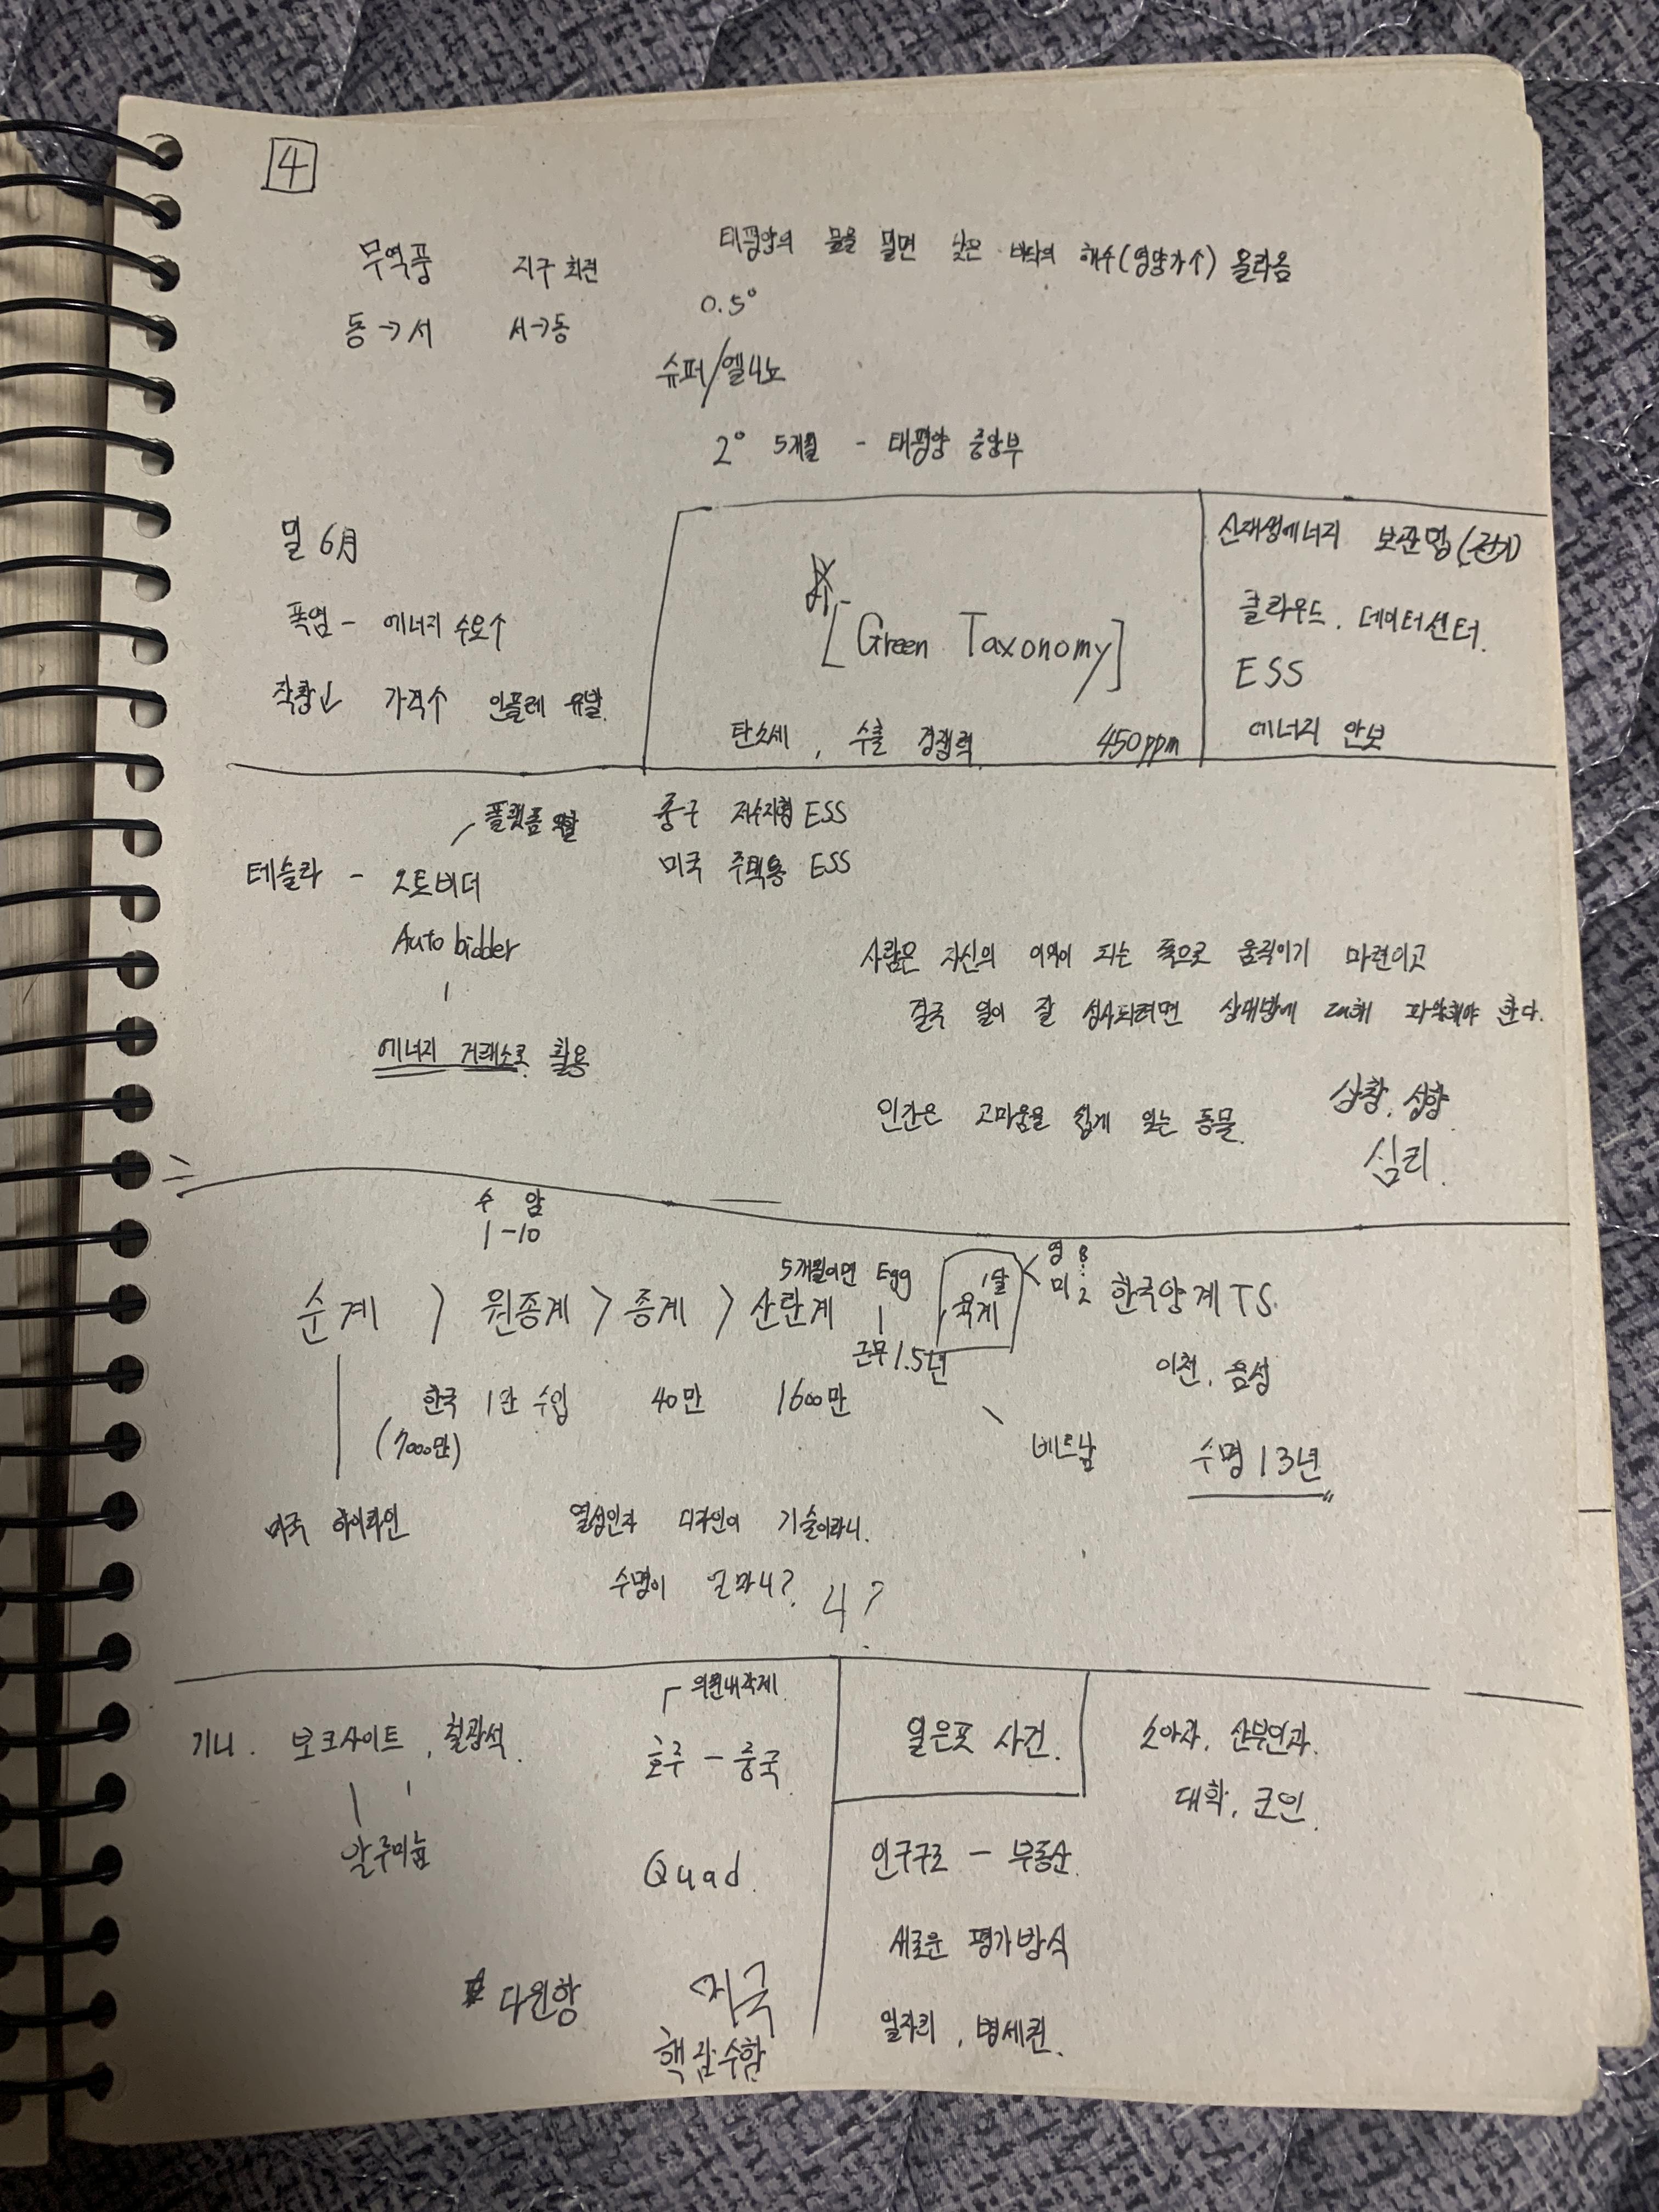 4
무역풍 지구 회전 태평양의 물을 밀면 낮은 바닥의 해수(영양가↑) 올라옴
동→서 서→동 0.5°
슈퍼/엘니뇨
2° 5개월 - 태평양 중앙부
밀 6月
폭염 - 에너지 수요↑
작황↓ 가격↑ 인플레 유발.
[Green Taxonomy]
탄소세, 수출 경쟁력. 450ppm
신재생에너지
클라우드. 데이터센터.
ESS
에너지 안보
플랫폼 역할
테슬라 - 오토비더
Auto bidder
에너지 거래소로 활용
중국 저수지형 ESS
미국 주택용 ESS
사람은 자신의 이익이 되는 쪽으로 움직이기 마련이고
결국 일이 잘 성사되려면 상대방에 대해 파악해야 한다.
인간은 고마움을 쉽게 잊는 동물.
상황. 성향
심리.
수 암
1-10
순계 > 원종계 > 종계 > 산란계
5개월이면 Egg
근무 1.5년
1달
육계
영 8
미 2
한국양계 TS.
이천. 음성
한국 1만 수입 40만 1600만
(7000만)
베트남
수명 13년
미국 하이라인
열섬인자 디자인이 기술이라니.
수명이 얼마니? 4?
기니. 보크사이트, 철광석.
알루미늄
의원내각제
호주 - 중국
Quad.
다윈항
미국
핵잠수함
얼은포 사건.
소아과. 산부인과.
대학. 코인.
인구구조 - 부동산.
새로운 평가방식
일자리, 병세권.